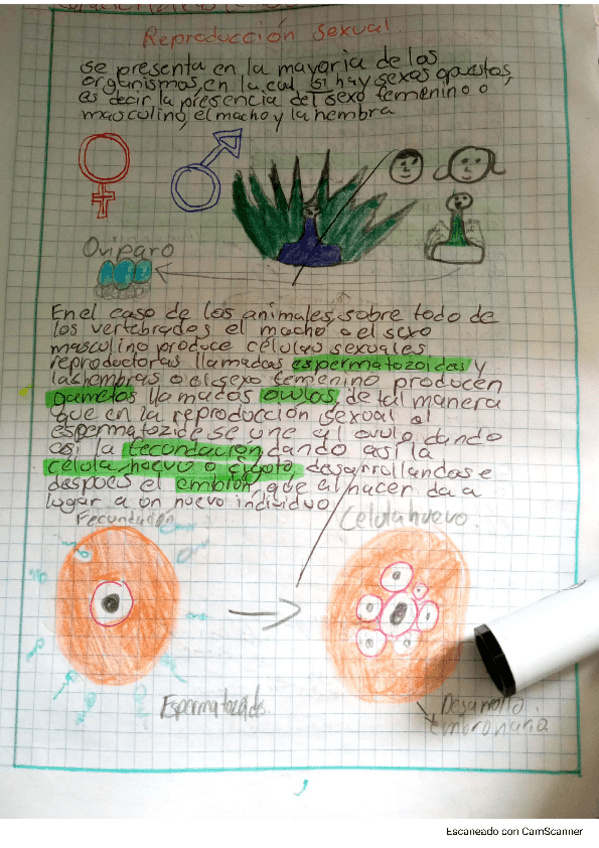 Reproducción sexual.
se presenta en la mayoria de los
organismos, en la cual si hay sexos opuestos,
es decir la presencia del sexo femenino o
masculino, el macho y la hembra
Oviparo
En el caso de los animales, sobre todo de
los vertebrados el macho o el sexo
masculino produce células sexuales
reproductoras llamadas espermatozoides y
las hembras o el sexo femenino producen
gametos llamados ovulos, de tal manera
que en la reproducción sexual el
espermatozide se une al ovulo dando
asi la fecundación, dando asi la
célula huevo o cigoto, desarrollandose
despues el embion, que al nacer da a
lugar a un nuevo individuo
Fecundación
Celula huevo.
Espermatozoids.
Desarrollo
embronario.
Escaneado con CamScanner